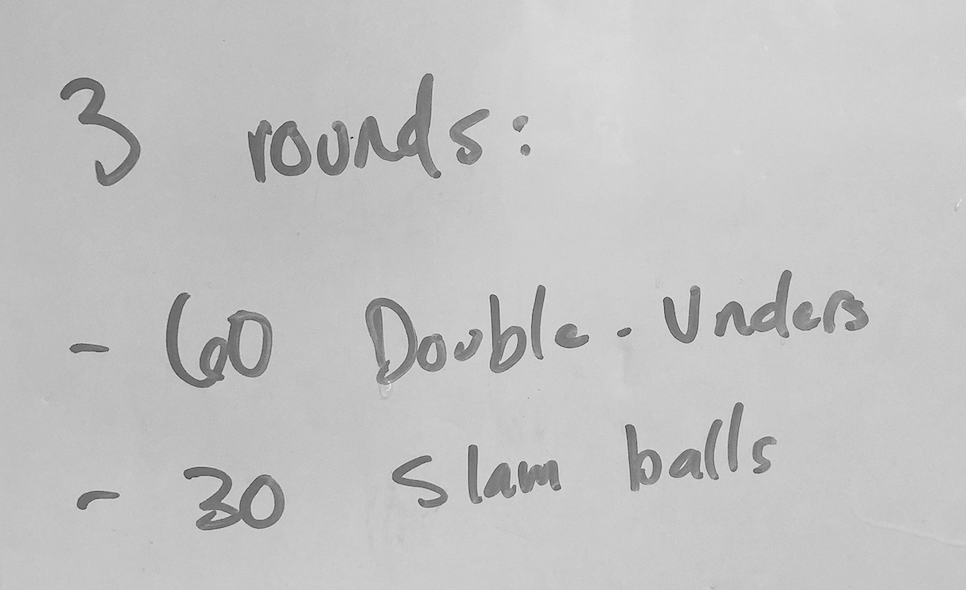 3 rounds:
- 60 Double-Unders
- 30 Slam balls